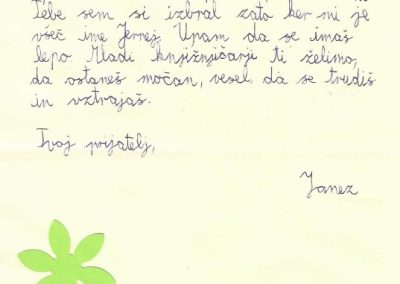 Tebe sem si izbral zato ker mi je
všeč ime Jernej. Upam da se imaš
lepo. Mladi knjižničarji ti želimo,
da ostaneš močan, vesel da se trudiš
in vztrajaš.
Tvoj prijatelj,
Janez